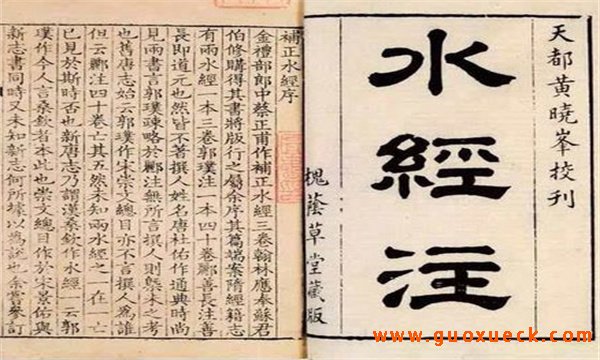 天都黃曉峯校刊
水經注
槐蔭草堂藏版
補正水經序
金禮部郎中蔡正甫作補正水經三卷翰林應奉蘇君
伯修購得其書將版行之屬余序其篇端案隋經籍志
有兩水經一本三卷郭璞注一本四十卷酈善長注善
長即道元也然皆不著撰人姓名唐杜佑作通典時尚
見兩書言郭璞疎略於酈注無所言撰人則槩未之考
也舊唐志始云郭璞作宋崇文總目亦不言撰人爲誰
但云酈注四十卷亡其五然未知兩水經之一在一亡
已見於斯時否也新唐志乃謂漢桑欽作水經一云郭
璞作今人言桑欽者本此也崇文總目作於宋景佑與
新志書同時又未知新志何所據以爲說也余嘗參訂
www.guoxueck.com